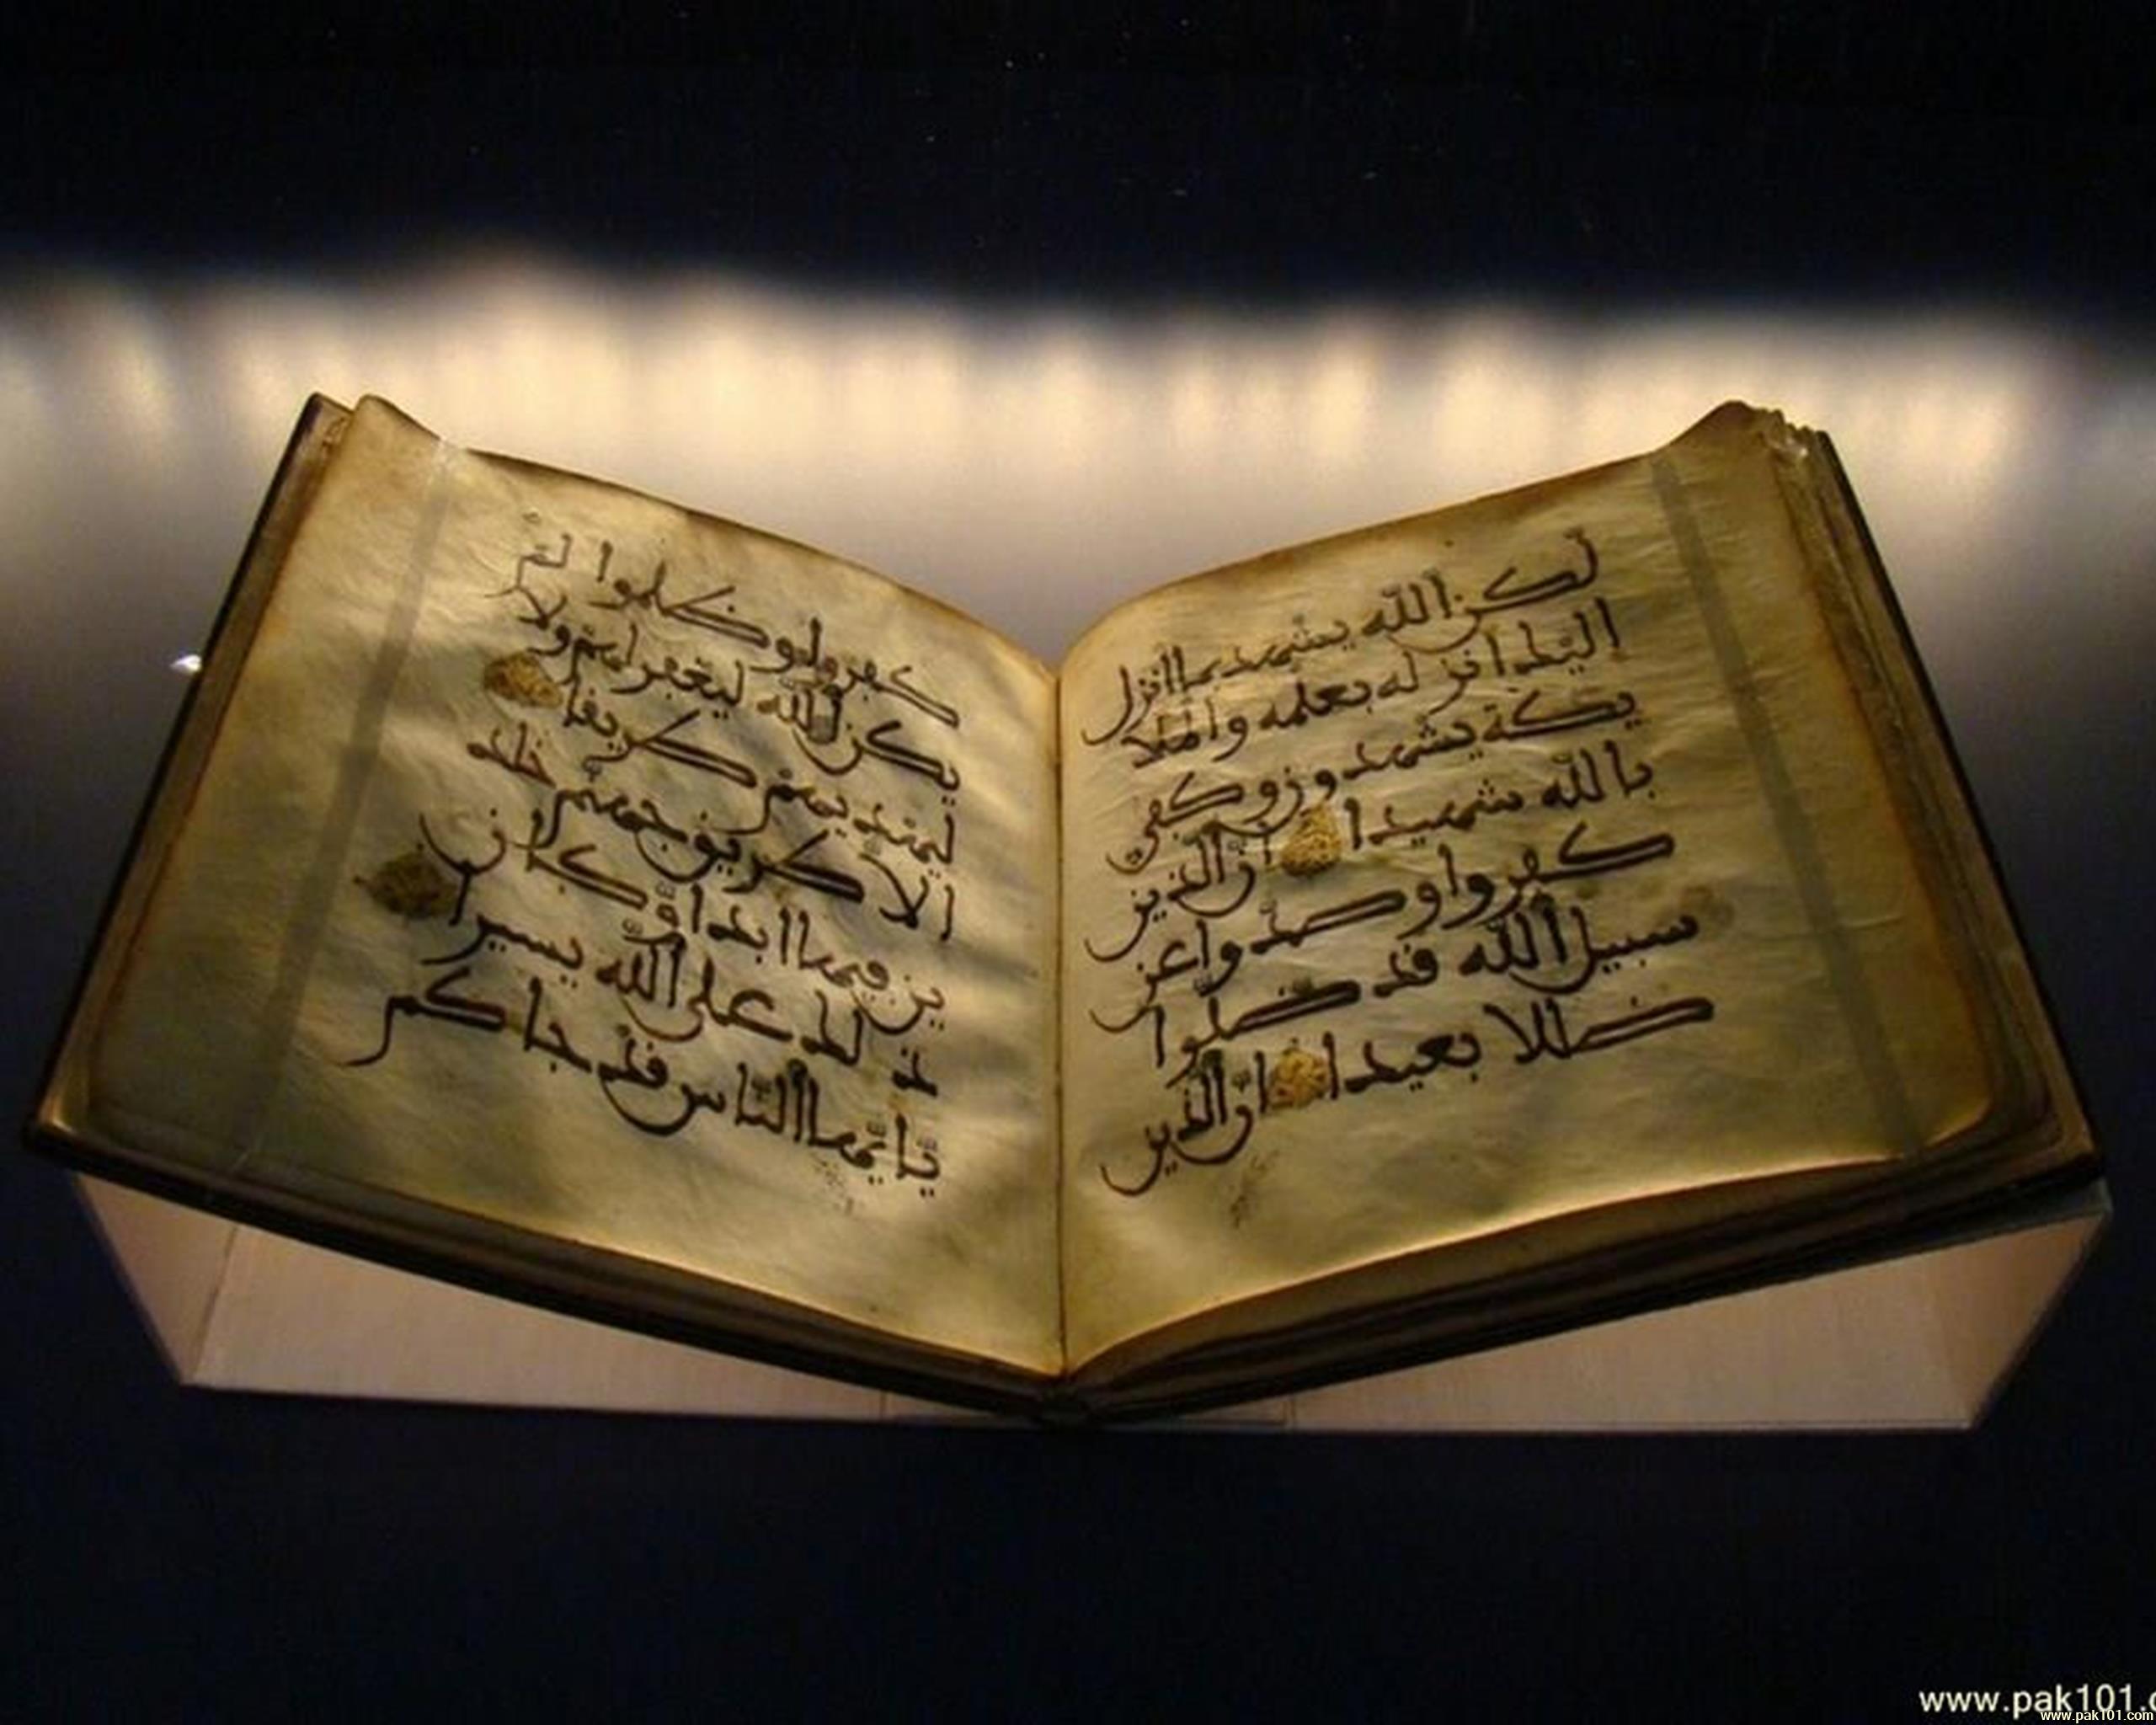 لكن الله يشهد بما انزل
اليك انزله بعلمه والملا
يكة يشهدون وكفى
بالله شهيدا ان الذين
كفروا وصدّوا عن
سبيل الله قد ضلّوا
ضللا بعيدا انّ الذين
كفروا وظلموا لم
يكن الله ليغفر لهم ولا
ليهديهم طريقا
الا طريق جهنم خلد
ين فيها ابدا وكان
ذلك على الله يسيرا
يايّها النّاس قد جاكم
www.pak101.c
www.pak101.com